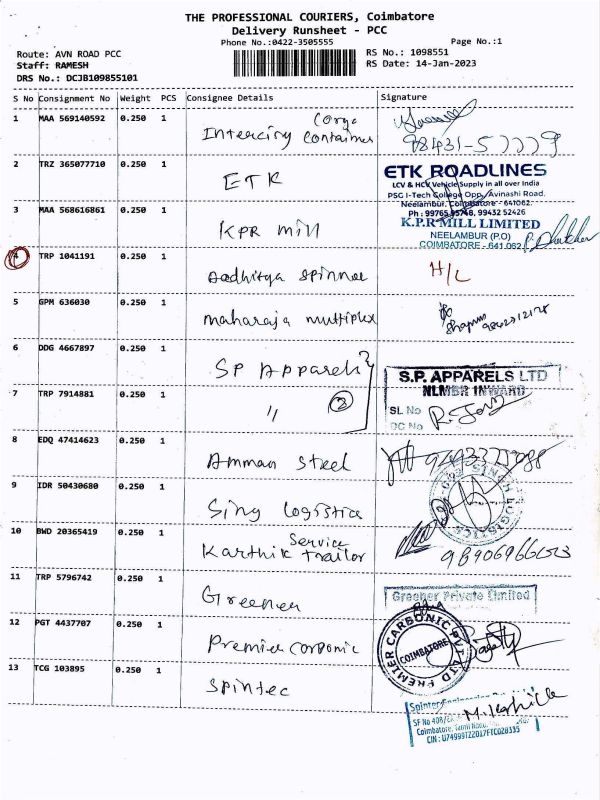 THE PROFESSIONAL COURIERS, Coimbatore
Delivery Runsheet - PCC
Phone No.:0422-3505555
Page No.:1
Route: AVN ROAD PCC
Staff: RAMESH
DRS No.: DCJB109855101
RS No.: 1098551
RS Date: 14-Jan-2023
S No Consignment No Weight PCS Consignee Details Signature
1 MAA 569140592 0.250 1 Intercity Container
2 TRZ 365077710 0.250 1 ETK
ETK ROADLINES
LCV & HCV Vehicle Supply in all over India
PSG I-Tech College Opp, Avinashi Road,
Neelambur, Coimbatore - 641062.
Ph : 99765 95748, 99432 52426
3 MAA 568616861 0.250 1 KPR mill
K.P.R MILL LIMITED
NEELAMBUR (P.O)
COIMBATORE - 641 062
4 TRP 1041191 0.250 1 Aadhitya spinner H/L
5 GPM 636030 0.250 1 maharaja multiplex
6 DDG 4667897 0.250 1 SP Apparels
S.P. APPARELS LTD
NLMBR INWARD
SL No
DC No
7 TRP 7914881 0.250 1 " 2
8 EDQ 47414623 0.250 1 Amman steel
9 IDR 50430680 0.250 1 Sing logistics
10 BWD 20365419 0.250 1 Karthik trailor Service
11 TRP 5796742 0.250 1 Greener
Greener Private Limited
12 PGT 4437707 0.250 1 Premier carbonic
PREMIER CARBONIC PVT LTD
COIMBATORE
13 TCG 103895 0.250 1 Spintec
SF No 408/
Coimbatore, Tamil Nadu
CIN : U74999TZ2017FTC028335